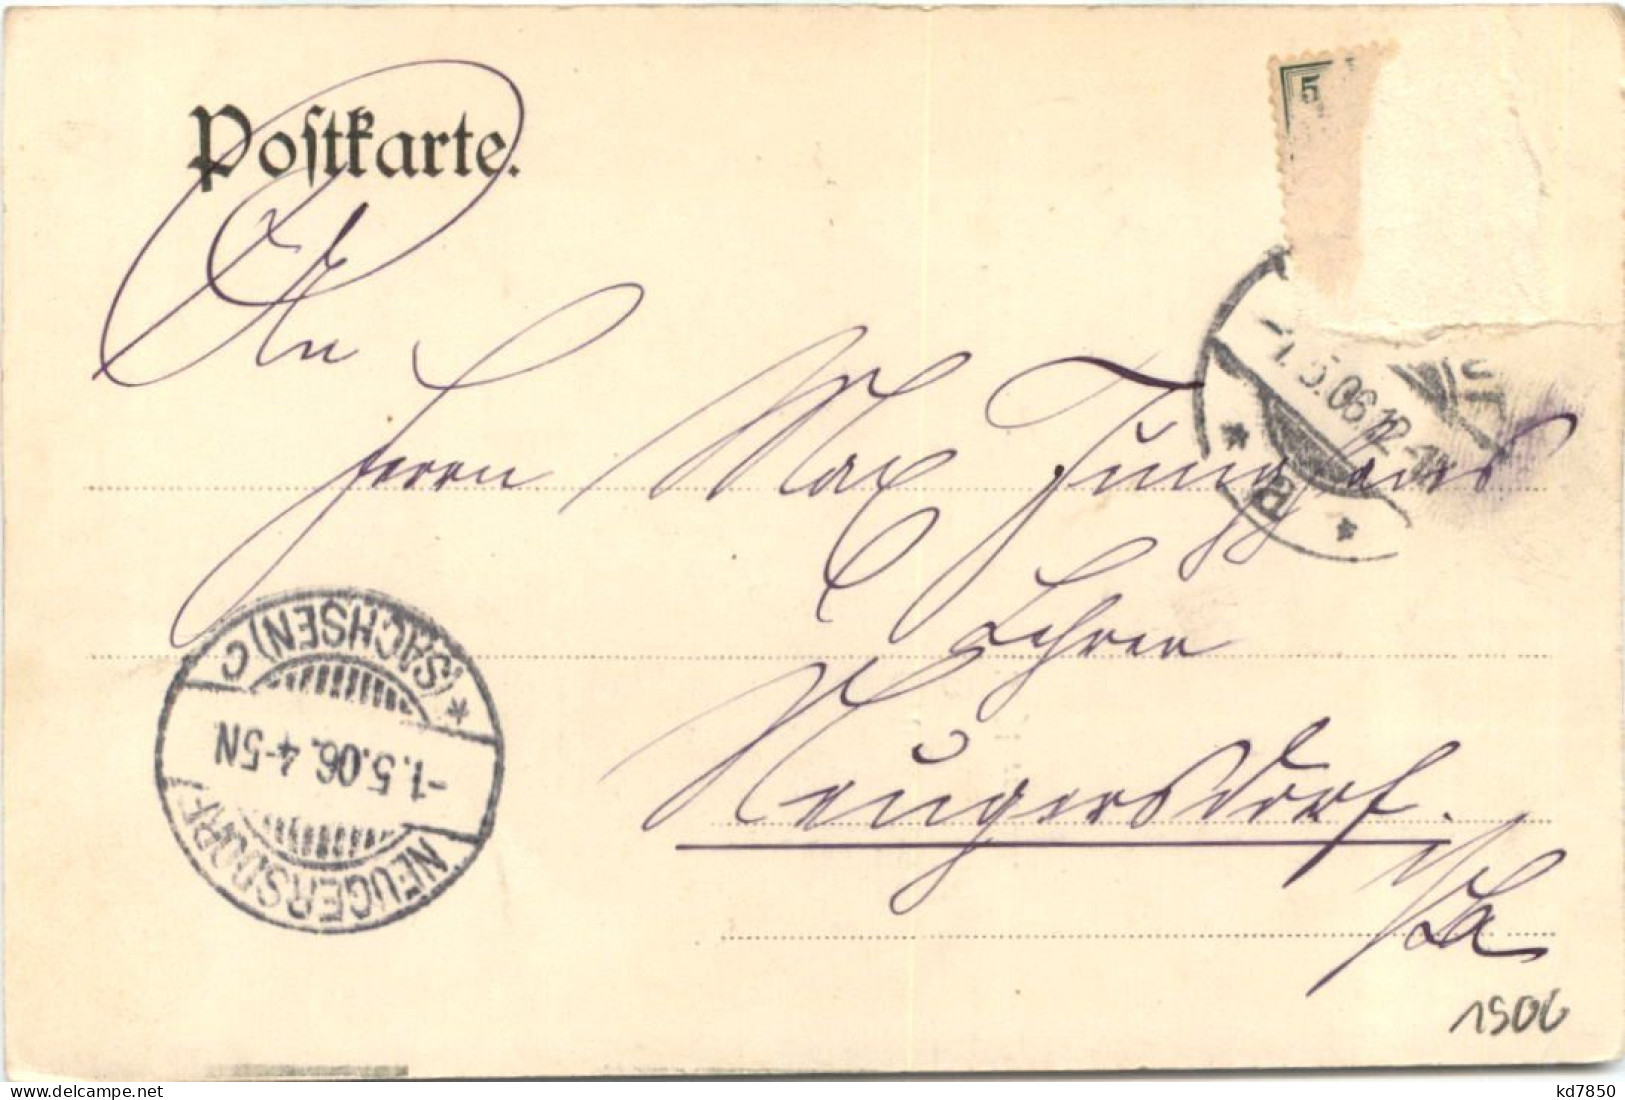 Postkarte.
5
An
Herrn Max Junghans
-1.5.06.12-1N
a
Lehrer
(SACHSEN) C
-1.5.06. 4-5N
NEUGERSDORF
Neugersdorf.
i/Sa
1906
kd7850